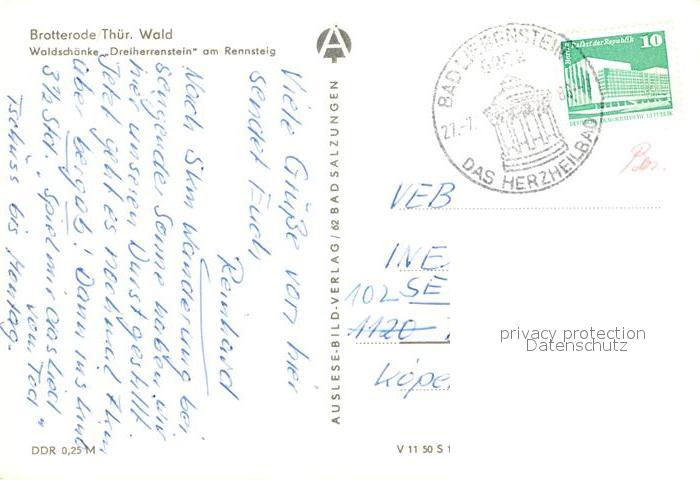 Brotterode Thür. Wald
Waldschänke „Dreiherrenstein" am Rennsteig
Viele Grüße von hier
sendet Euch
Reinhard
Nach 5km Wanderung bei
sengende Sonne haben wir
hier unseren Durst gestillt
Jetzt geht es nochmal 7km
aber bergab! Dann ins Kino
3½ Std. „Spiel mir das Lied
vom Tod"
Tschüss bis Montag.
DDR 0,25 M
AUSLESE-BILD-VERLAG/62 BAD SALZUNGEN
V 11 50 S 1
BAD LIEBENSTEIN
27.-7.
DAS HERZHEILBAD
Berlin Palast der Republik
10
DEUTSCHE DEMOKRATISCHE REPUBLIK
VEB
INE
102 SE
1120
Köpe
privacy protection
Datenschutz